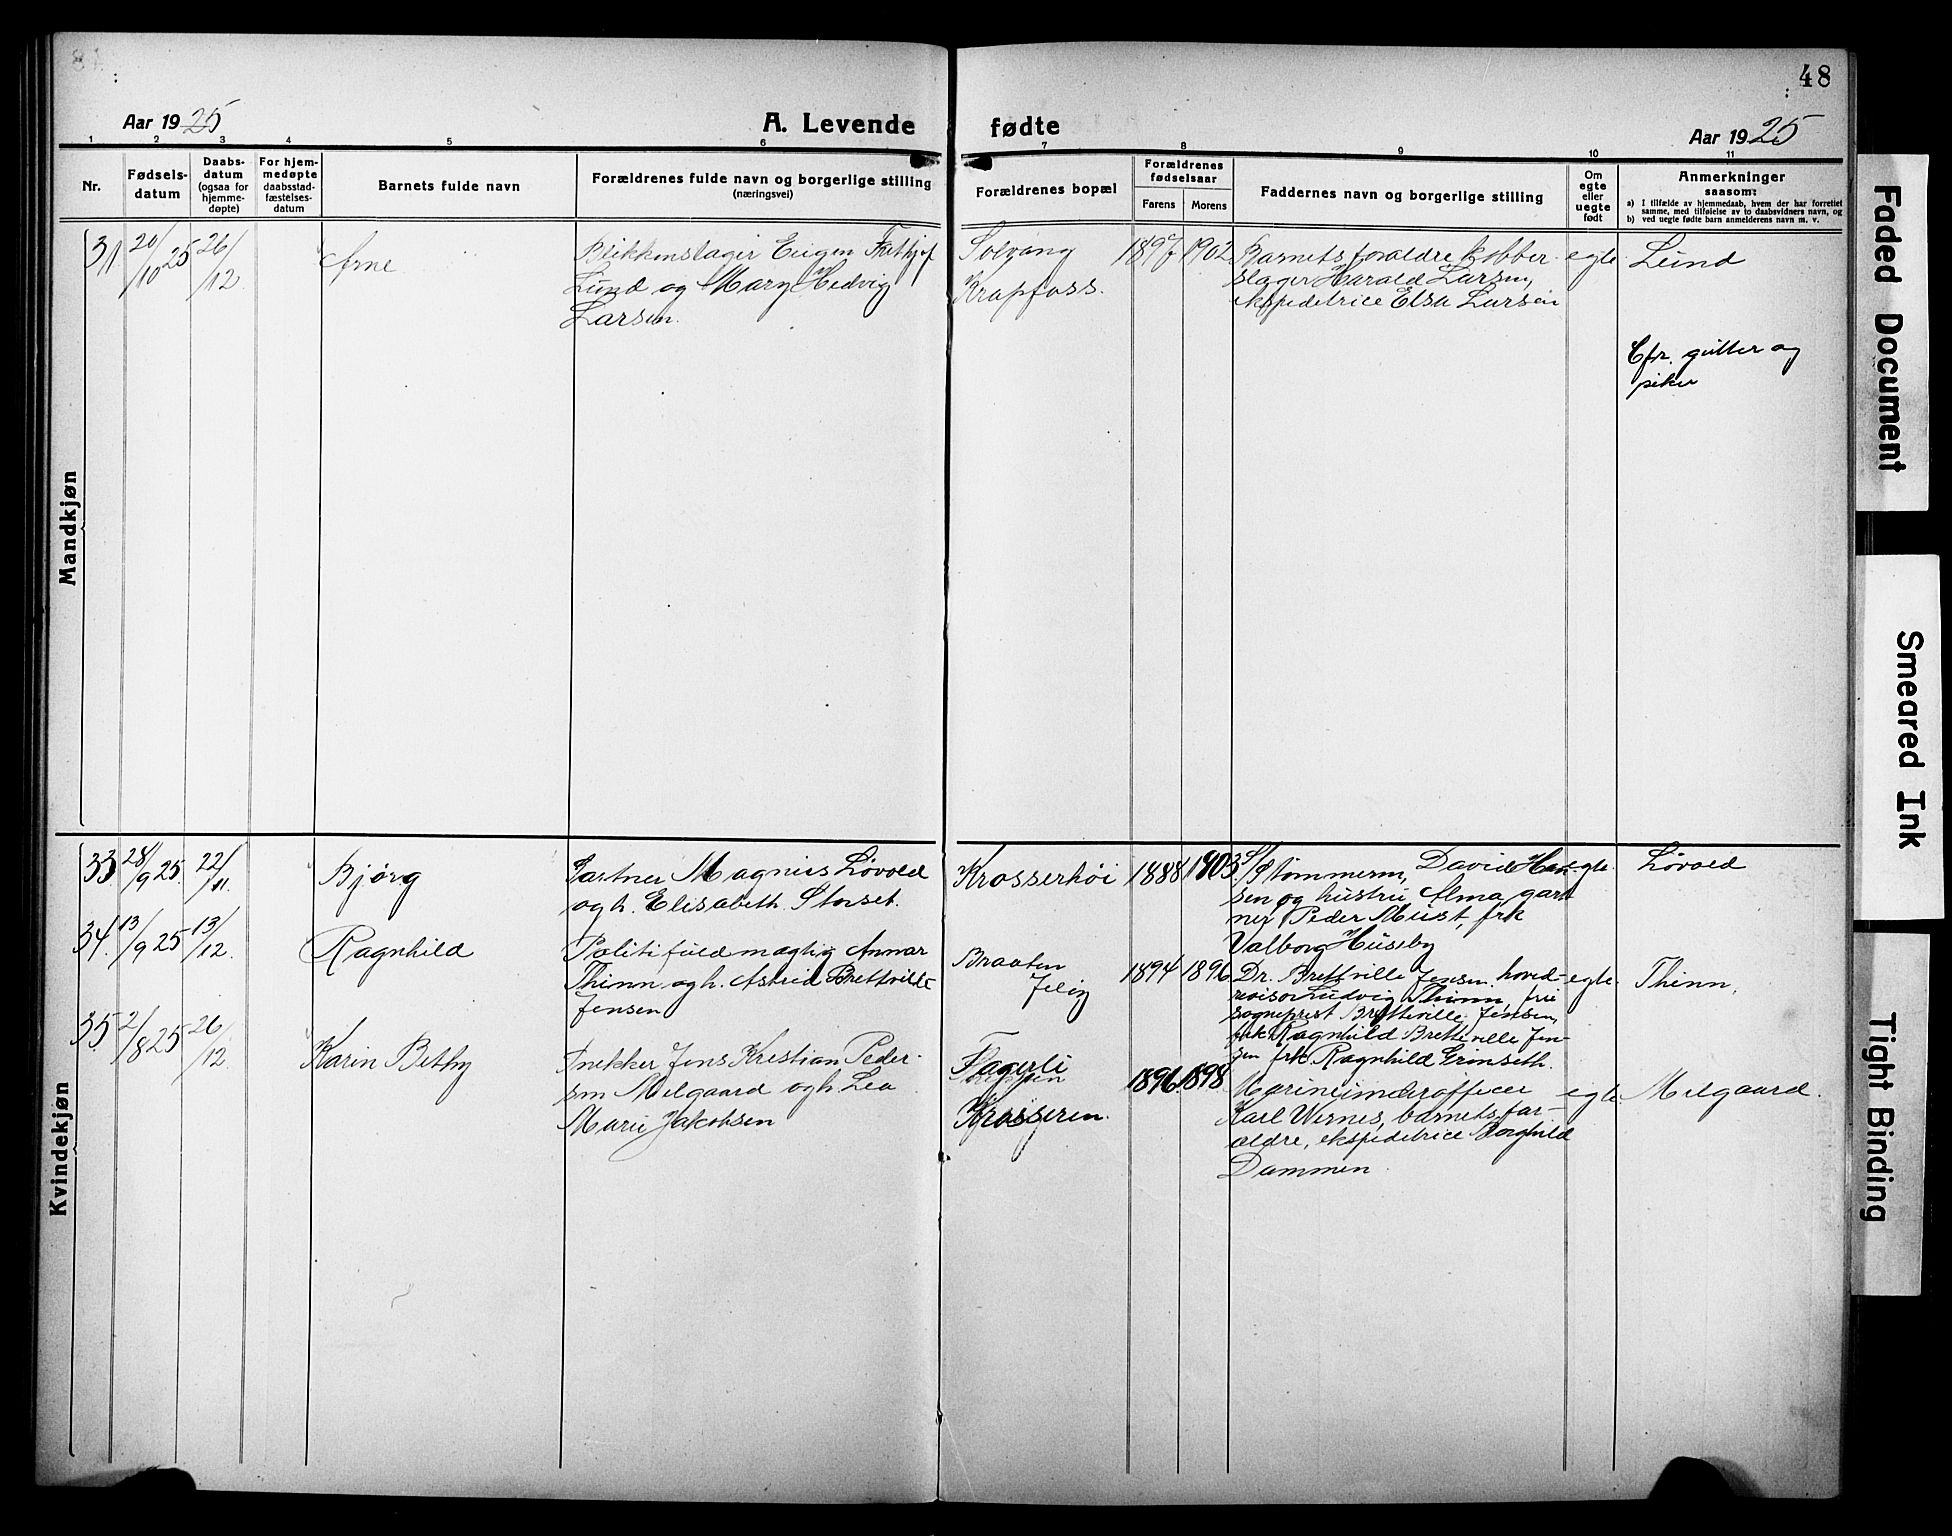 48
Aar 1925
A. Levende fødte
Aar 1925
1 2 3 4 5 6 7 8 9 10 11
Nr.
Fødsels-
datum
Daabs-
datum
(ogsaa for
hjemme-
døpte)
For hjem-
medøpte
daabsstad-
fæstelses-
datum
Barnets fulde navn
Forældrenes fulde navn og borgerlige stilling
(næringsvei)
Forældrenes bopæl
Forældrenes
fødselsaar
Farens
Morens
Faddernes navn og borgerlige stilling
Om
egte
eller
uegte
født
Anmerkninger
saasom:
a) I tilfælde av hjemmedaab, hvem der har forrettet
samme, med tilføielse av to daabsvidners navn, og
b) ved uegte fødte barn anmelderens navn m. v.
Mandkjøn
31 20/10 25 26/12
Arne
Blikkenslager Eugen Frithjof
Lund og Mary Hedvig
Larsen.
Solvang
Krapfoss.
1897 1902
Barnets foraldre kobber-
slager Harald Larsen,
ekspeditrice Elsa Larsen
egte
Lund
Cfr. gutter og
piker
Kvindekjøn
33 28/9 25. 22/11.
Bjørg
Gartner Magnus Løvold
og h. Elisabeth Storset.
Krosserhøi
1888 1903
Tømmerm, David Han-
sen og hustru Alma gart
ner Peder Must, frk
Valborg Huseby
egte.
Løvold
34. 13/9 25 13/12.
Ragnhild
Politifuldmægtig Annar
Thinn og h. Astrid Brettville
Jensen
Braaten
Jeløy
1894 1896
Dr. Brettville Jensen. hoved-
revisor Ludvig Thinn, fru
sogneprest Brettville Jensen,
frk Ragnhild Brettville Jen-
sen frk. Ragnhild Grinseth.
egte.
Thinn.
35. 2/8 25 26/12
Karin Bethy
Snekker Jens Kristian Peder-
sen Melgaard og h. Lea
Marie Jakobsen
Fagerli
Krosseren.
1896. 1898
Marineunderofficer
Karl Wernes, barnets for-
ældre, ekspeditrice Borghild
Dammen.
egte.
Melgaard.
Faded Document
Smeared Ink
Tight Binding